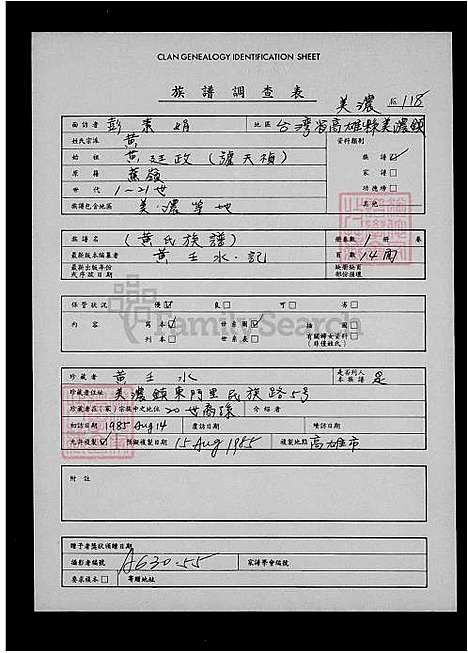 CLAN GENEALOGY IDENTIFICATION SHEET
族譜調查表
美濃 No 118
面訪者 彭素娟 地區 台灣省高雄縣美濃鎮
姓氏宗派 黃 資料類別
始祖 黃廷政(號天禎) 族譜 ✓
原籍 蕉嶺 家譜
世代 1~21世 功德榜
族譜包含地區 美濃等地 其他
族譜名 (黃氏族譜) 冊卷數 1 冊 卷
最新版本編纂者 黃壬水.記 頁數 14面
最新出版年份
或序跋日期
保管狀況 優 ✓ 良 可 劣
內容 寫本 ✓ 世系圖 ✓ 插圖
刊本 世系表 有關婦女資料
(非僅姓氏)
珍藏者 黃壬水 是否列入本族譜 是
珍藏者住址 美濃鎮東門里民族路5號
珍藏者在(家)宗族中之地位 20世裔孫 介紹者
初訪日期 1985 Aug 14 覆訪日期 續訪日期
允許複製 ✓ 預擬複製日期 15 Aug 1985 複製地點 高雄市
附註
贈予者獎狀頒贈日期
攝影者編號 A630-55 家譜學會編號
要求複本 寄贈地址
FamilySearch